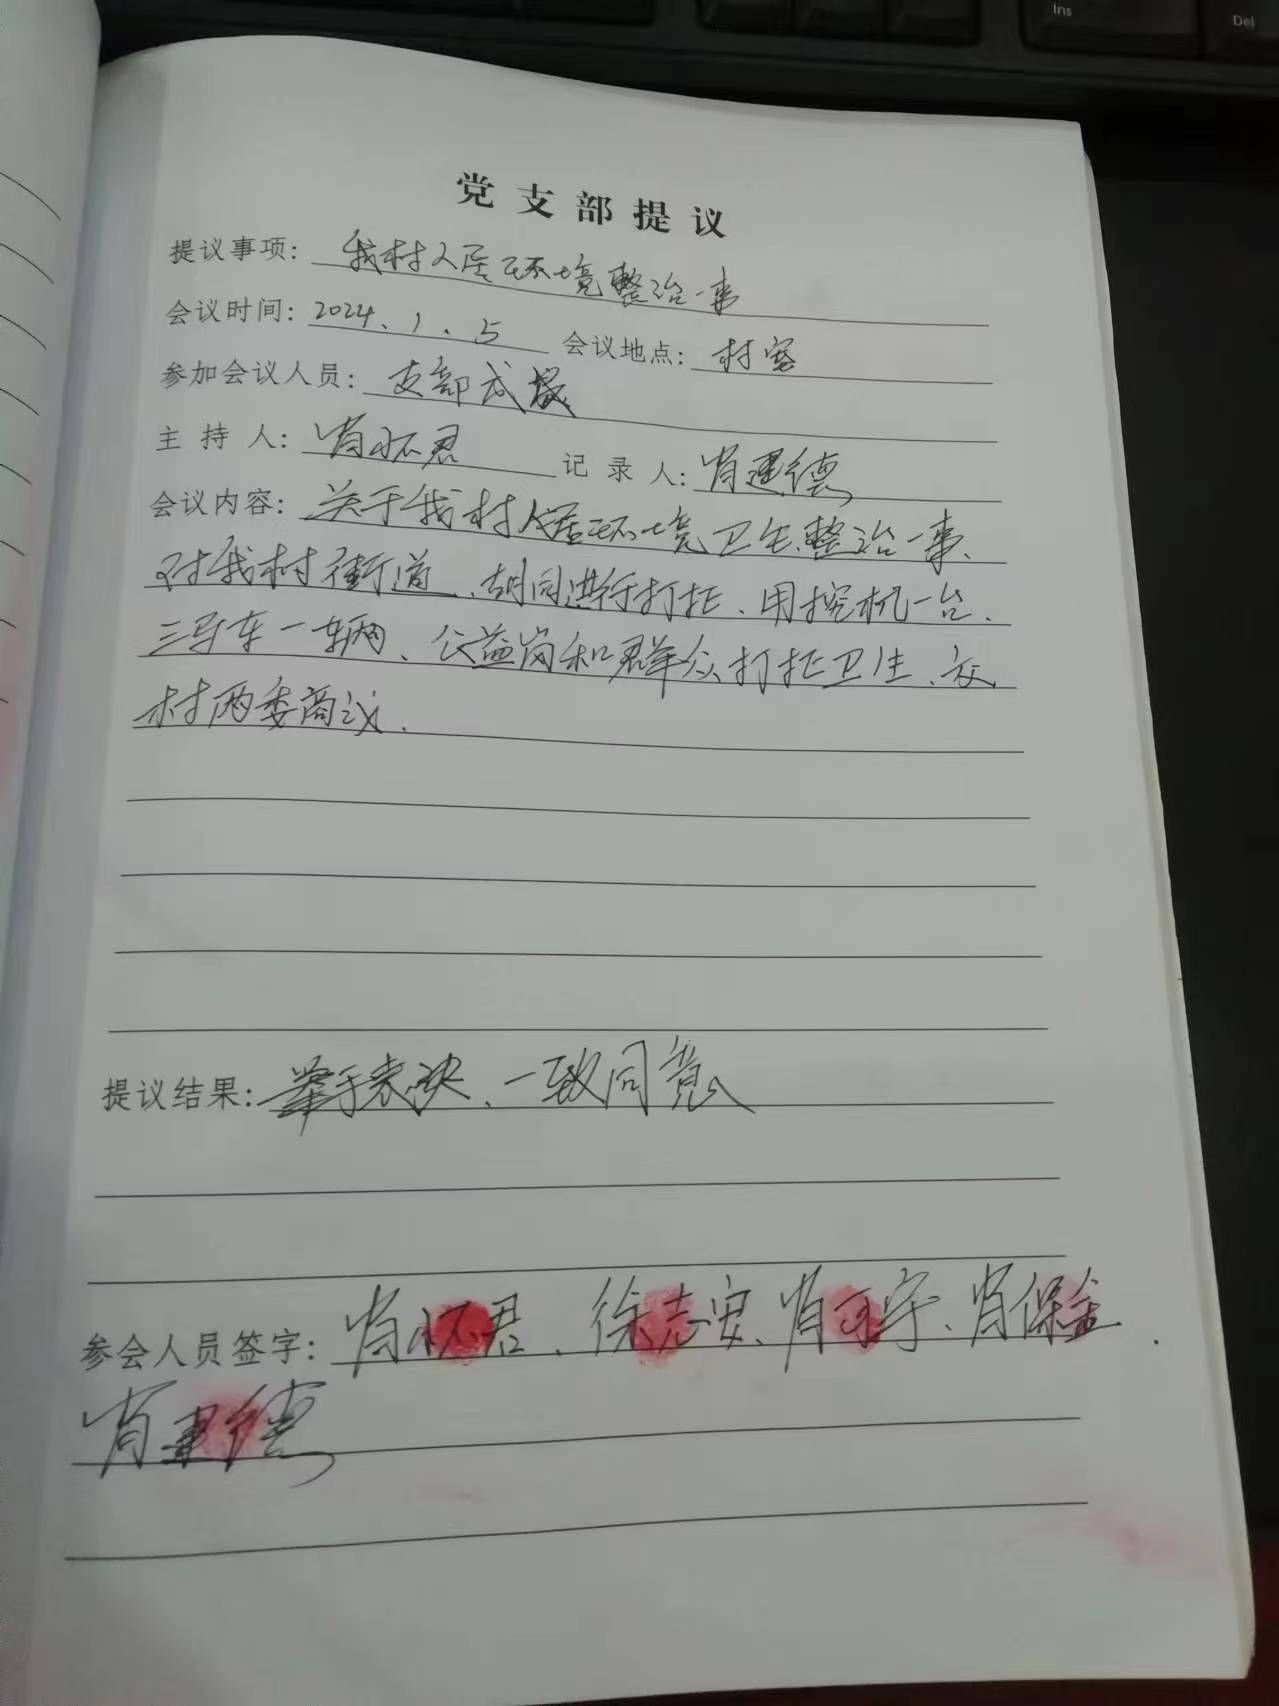 Ins
Del
党支部提议
提议事项: 我村人居环境整治一事
会议时间: 2024.1.5 会议地点: 村室
参加会议人员: 支部成员
主持人: 肖怀君 记录人: 肖建德
会议内容: 关于我村人居环境卫生整治一事、
对我村街道、胡同进行打扫、用挖机一台、
三马车一辆、公益岗和群众打扫卫生、交
村两委商议.
提议结果: 举手表决、一致同意
参会人员签字: 肖怀君、徐志安、肖可宁、肖保金.
肖建德